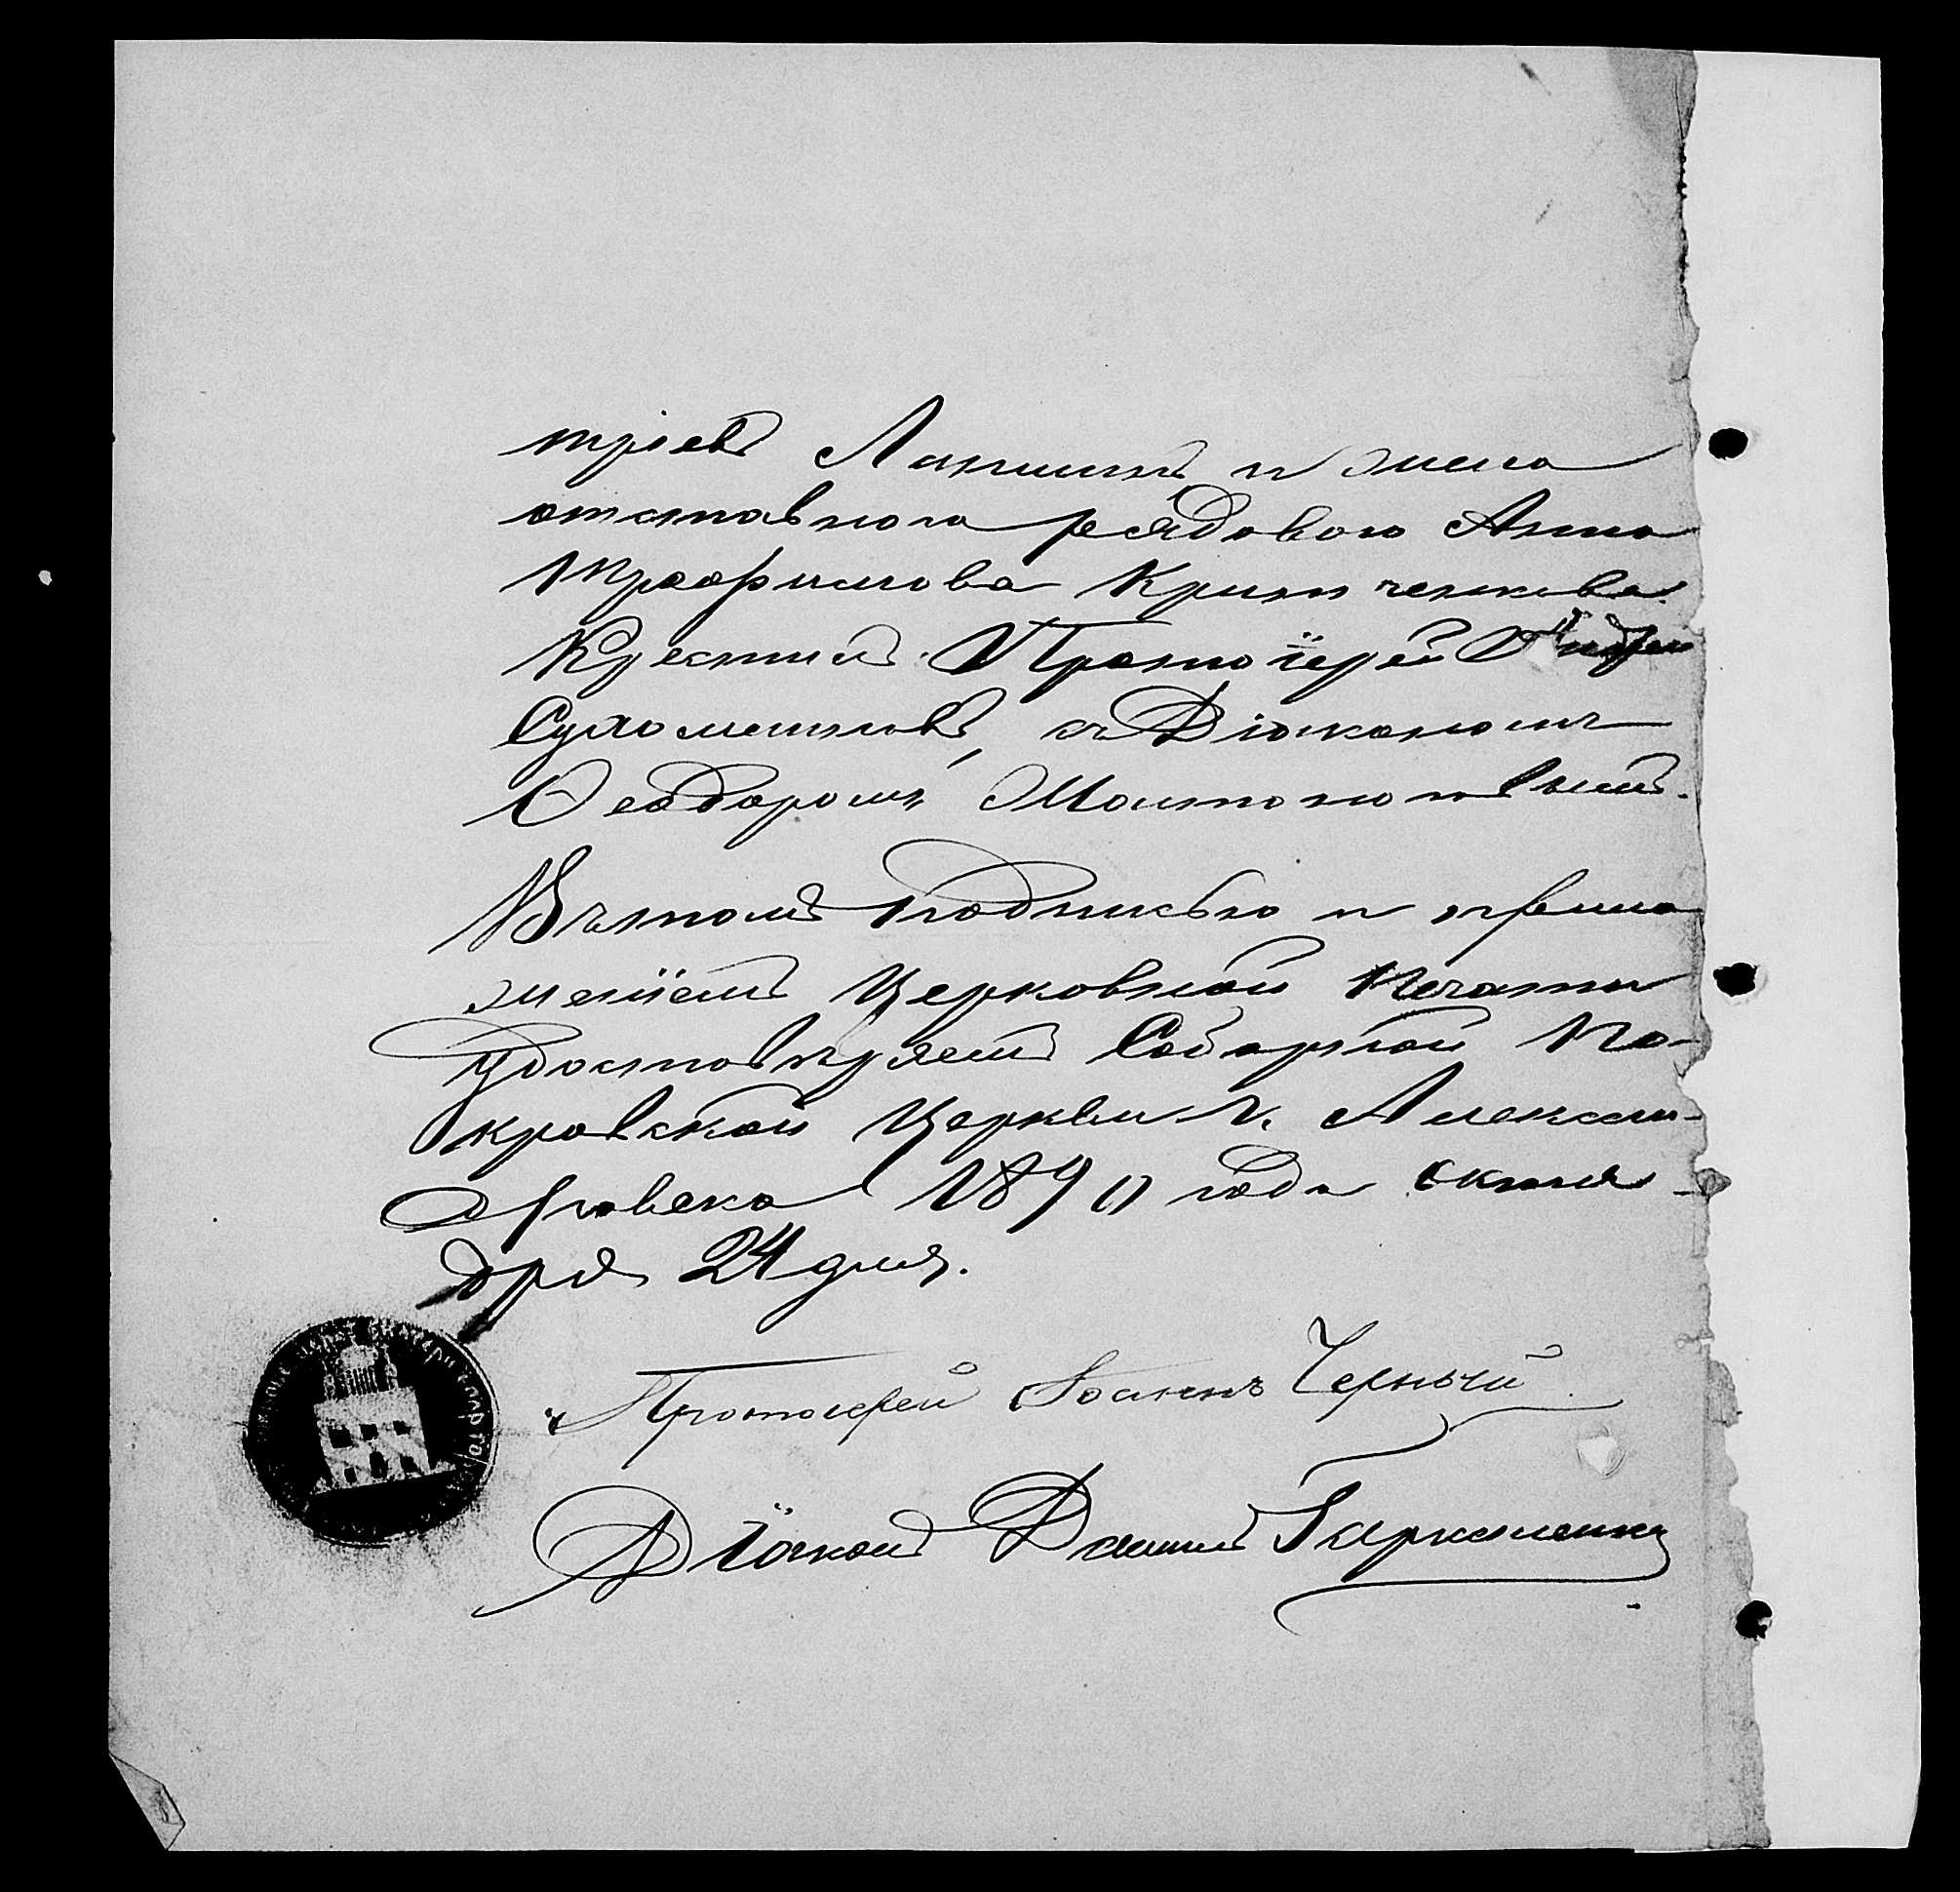 тріевъ Лапшинъ и жена
отставного рядового Анна
Трофимова
Крестилъ Протоіерей Андрей
съ Діакономъ
Ѳеодоромъ
Въ томъ подписью и прило
женіемъ Церковной печати
Удостовѣряемъ Соборной По-
кровской Церкви г. Алексан-
дровска 1890 года октя-
бря 24 дня.
Протоіерей Іоаннъ Черный
Діаконъ Даніилъ Гармашенко